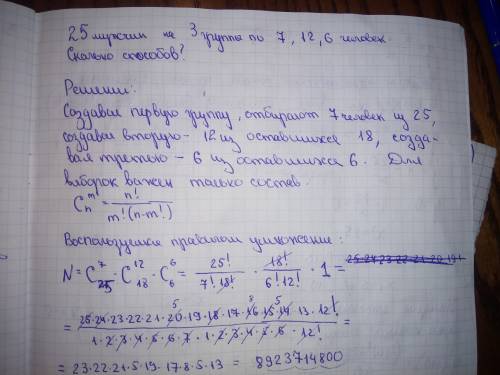 25 мужчин на 3 группы по 7, 12, 6 человек.
Сколько способов?
Решение:
Создавая первую группу, отбирают 7 человек из 25,
создавая вторую - 12 из оставшихся 18, созда-
вая третью - 6 из оставшихся 6. Для
выборок важен только состав.
C_n^m = n! / m!(n-m!)
Воспользуемся правилом умножения:
N = C_25^7 · C_18^12 · C_6^6 = 25! / 7! 18! · 18! / 6! 12! · 1 =
= 25·24·23·22·21·20·19·18·17·16·15·14·13·12! / 1·2·3·4·5·6·7·1·2·3·4·5·6·12! =
= 23·22·21·5·19·17·8·5·13 = 8923714800